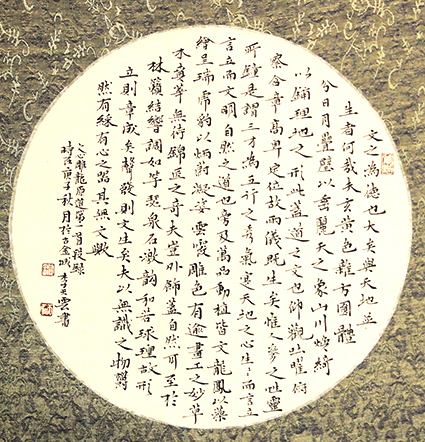 文之為德也大矣與天地並
生者何哉夫玄黃色雜方圓體
分日月疊璧以垂麗天之象山川煥綺
以鋪理地之形此蓋道之文也仰觀吐曜俯
察含章高卑定位故兩儀既生矣惟人參之性靈
所鍾是謂三才為五行之秀氣寔天地之心生而言立
言立而文明自然之道也旁及萬品動植皆文龍鳳以藻
繪呈瑞虎豹以炳蔚凝姿雲霞雕色有逾畫工之妙草
木賁華無待錦匠之奇夫豈外飾蓋自然耳至於
林籟結響調如竽瑟泉石激韻和若球鍠故形
立則章成矣聲發則文生矣夫以無識之物鬱
然有彩有心之器其無文歟
文心雕龍原道第一首段錄
時在庚子秋月於古金城李天雲書